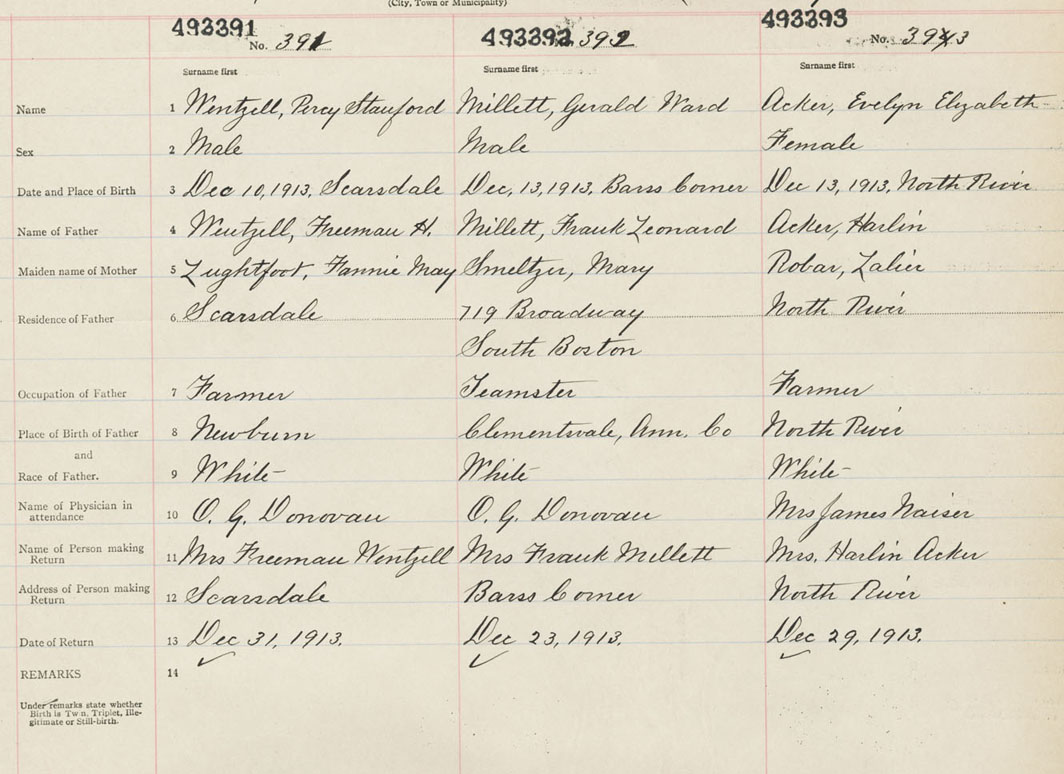 (City, Town or Municipality)
493391 493392 493393
No. 391 392 No. 393
Surname first Surname first Surname first
Name 1 Wentzell, Percy Stanford Millett, Gerald Ward Acker, Evelyn Elizabeth
Sex 2 Male Male Female
Date and Place of Birth 3 Dec 10, 1913, Scarsdale Dec, 13, 1913, Barss Corner Dec 13, 1913, North River
Name of Father 4 Wentzell, Freeman H. Millett, Frank Leonard Acker, Harlin
Maiden name of Mother 5 Lughtfoot, Fannie May Smeltzer, Mary Robar, Zalier
Residence of Father 6 Scarsdale 719 Broadway North River
South Boston
Occupation of Father 7 Farmer Teamster Farmer
Place of Birth of Father 8 Newburn Clementsvale, Ann. Co North River
and
Race of Father. 9 White White White
Name of Physician in
attendance 10 O. G. Donovan O. G. Donovan Mrs James Naiser
Name of Person making
Return 11 Mrs Freeman Wentzell Mrs Frank Millett Mrs. Harlin Acker
Address of Person making
Return 12 Scarsdale Barss Corner North River
Date of Return 13 Dec 31, 1913. Dec 23, 1913. Dec 29, 1913.
REMARKS 14
Under remarks state whether
Birth is Twn, Triplet, Ille-
gitimate or Still-birth.